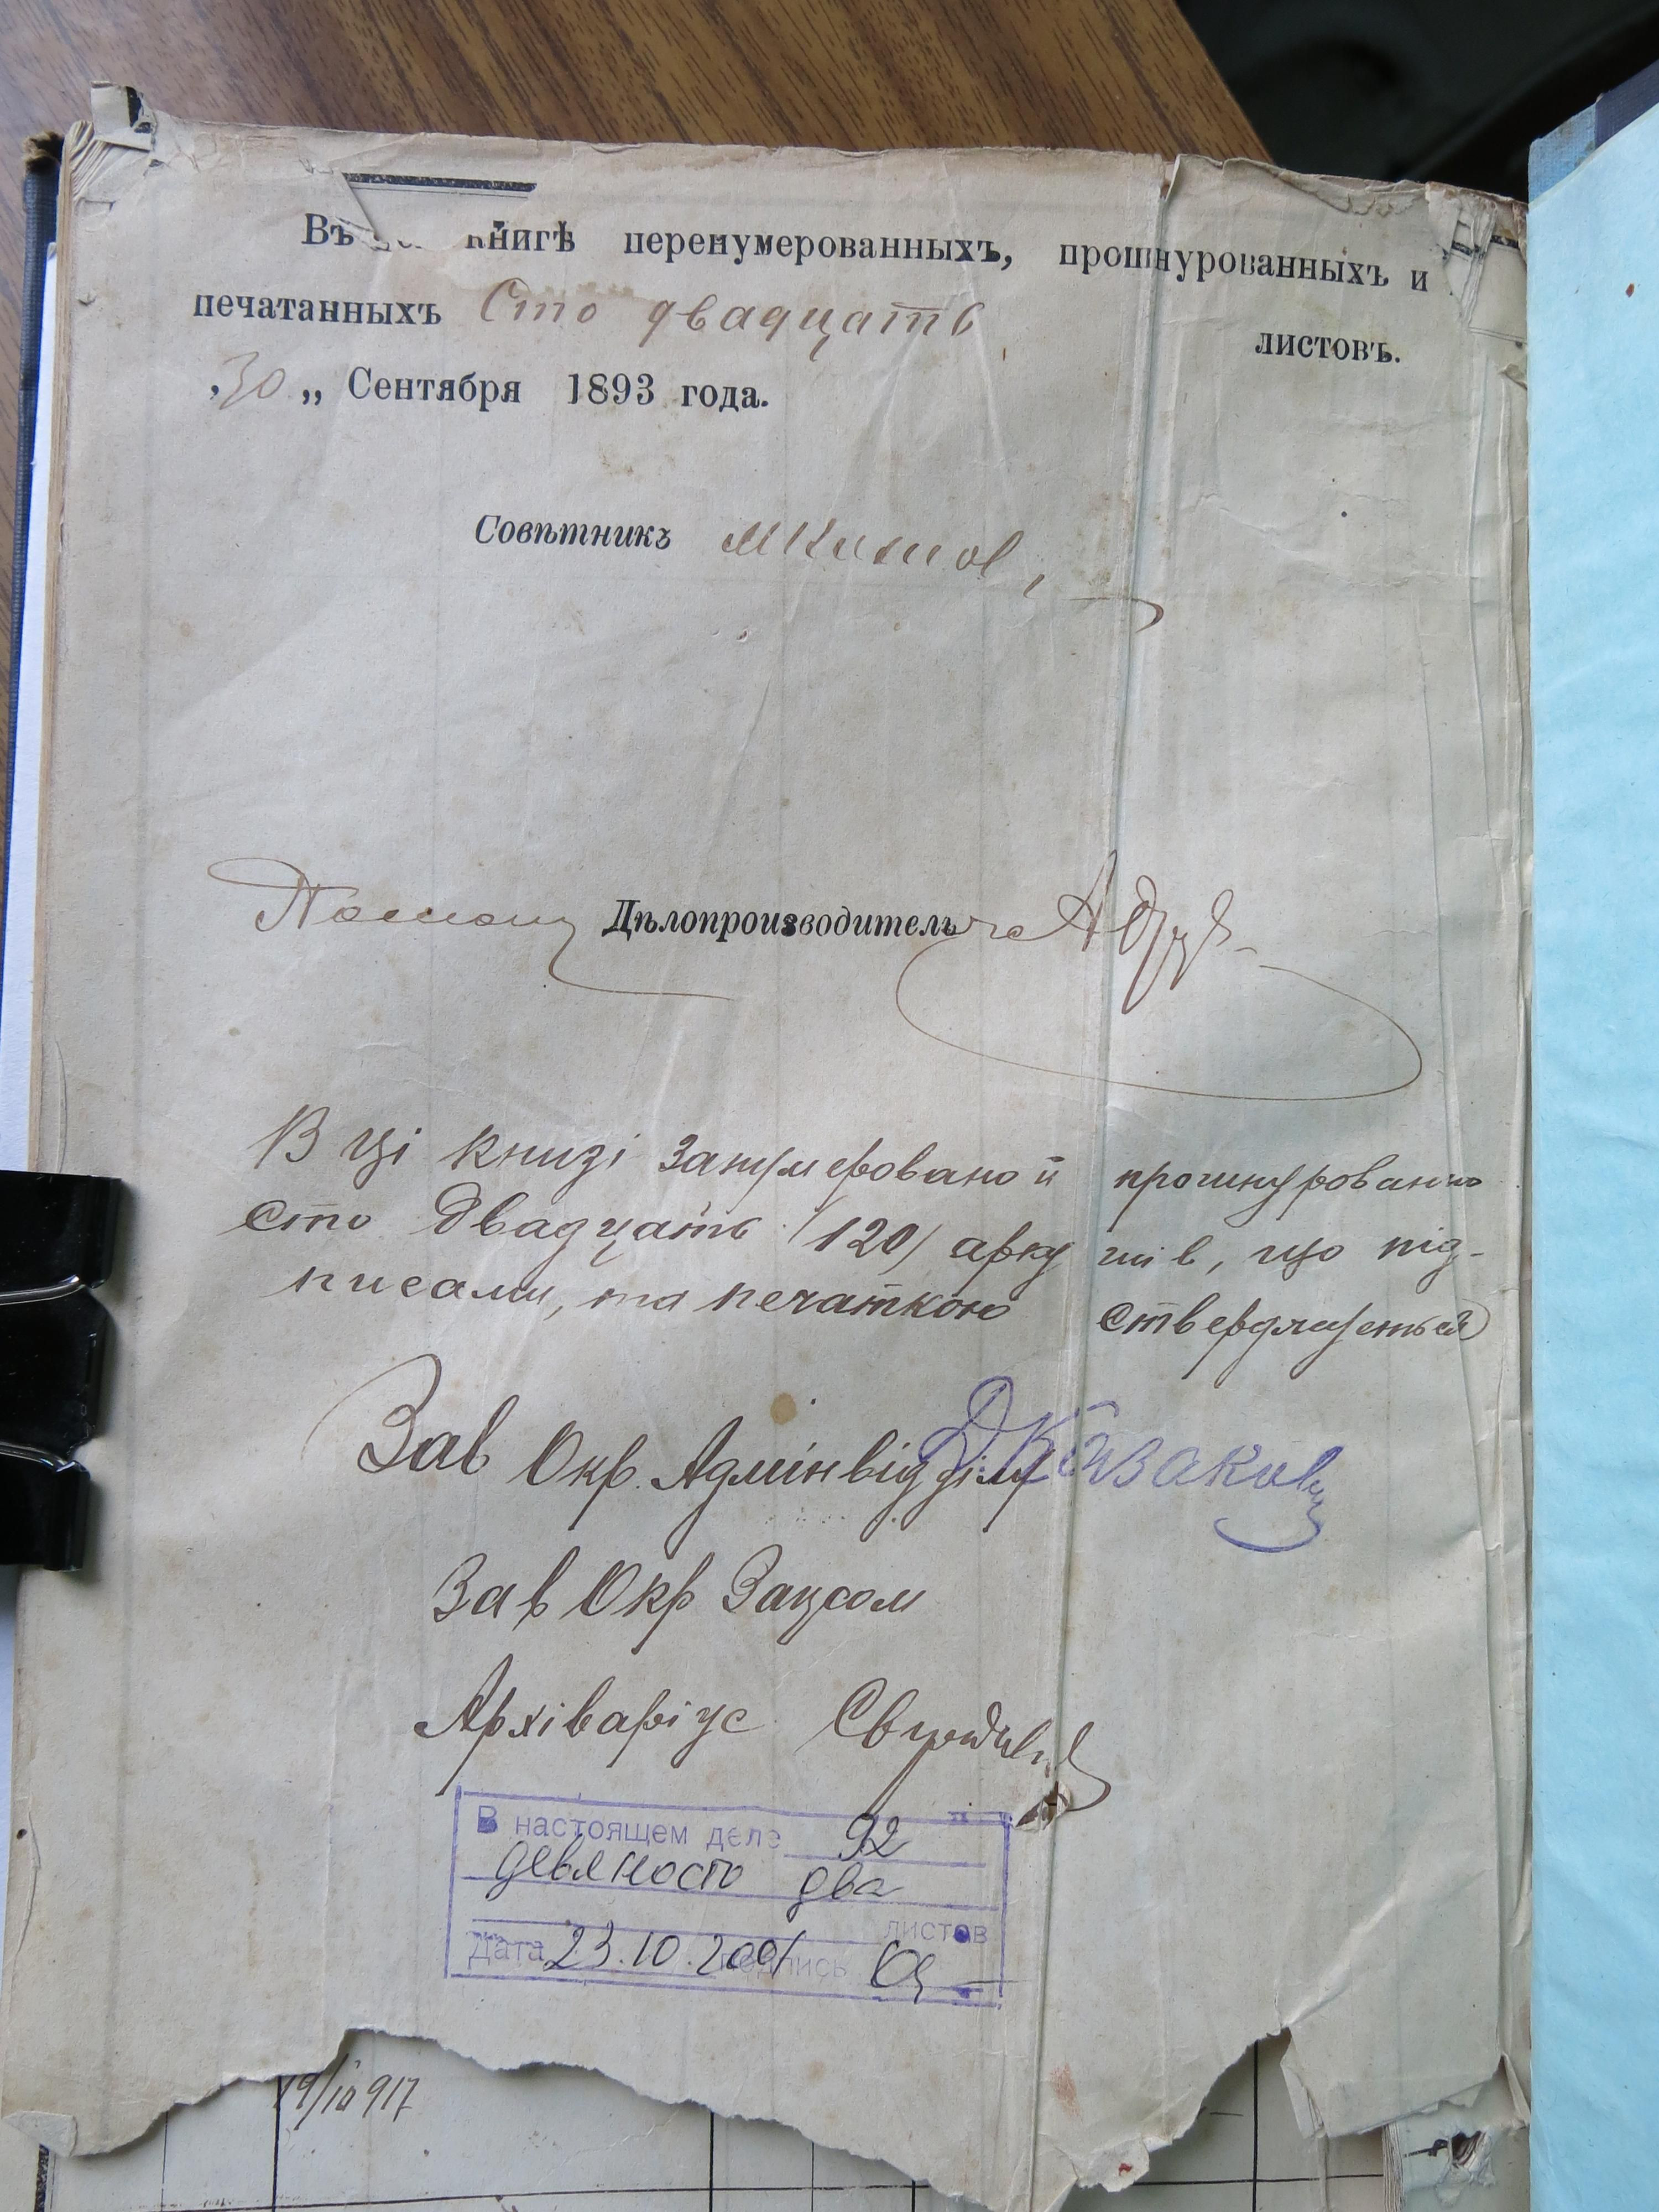 Въ книгѣ перенумерованныхъ, прошнурованныхъ и
печатанныхъ Сто двадцать листовъ.
„30„ Сентября 1893 года.
Совѣтникъ
Помощ Дѣлопроизводитель
В ці книзі занумеровано й прошнуровано
сто двадцать /120/ аркушів, що під-
писами, та печаткою стверджується
Зав Окр. Адмінвідділу
Зав Окр Загсом
Архіваріус
В настоящем деле 92
девяносто два
листов
Дата 23.10.2001 подпись
19/10 917